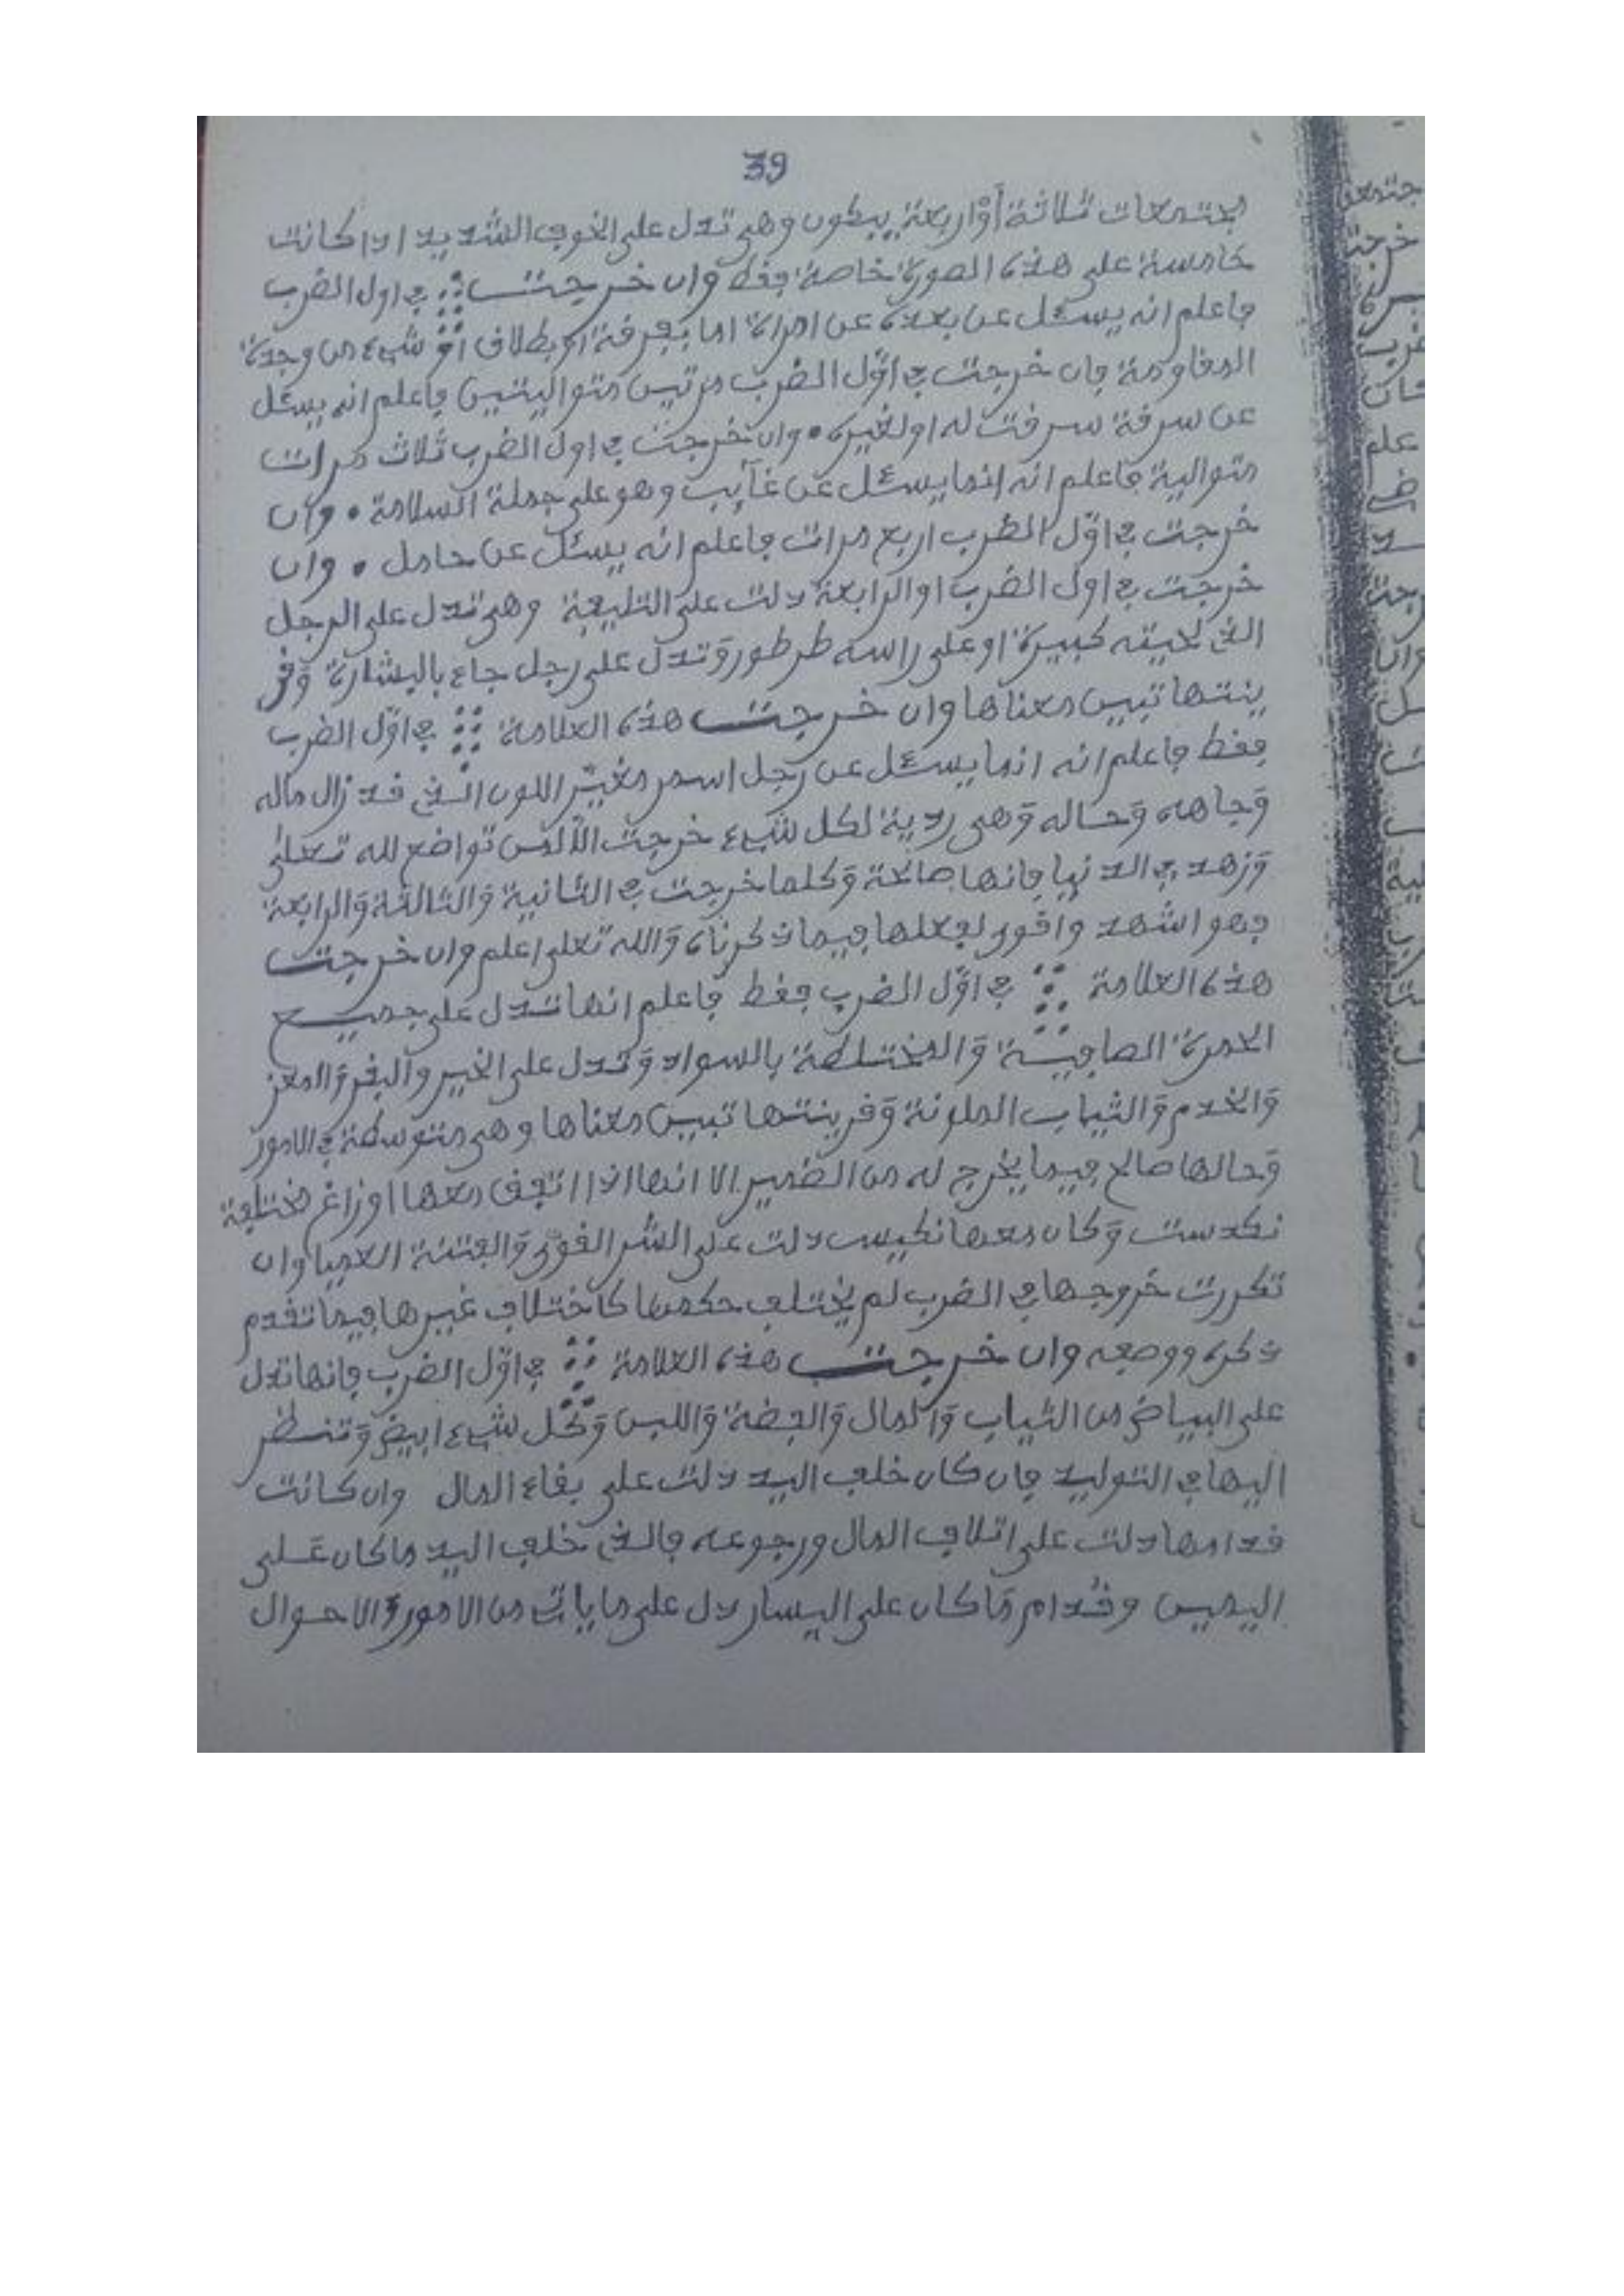 39
مجتمعات ثلاثة أوْ اربعة بيكون وهي تدل على الخوف الشديد اذا كانت
خامسة على هذه الصورة خاصة فقط وان خرجت في اول الضرب
فاعلم انه يسئل عن بعده عن امراة اما بفرقة او بطلاق اوْ شيء من وجدة
المقاومة فان خرجت في اوّل الضرب مرتين متواليتين فاعلم انه يسئل
عن سرقة سرقت له او لغيره • وان خرجت في اول الضرب ثلاث مرات
متوالية فاعلم انه انما يسئل عن غآيب وهو على جملة السلامة • وان
خرجت في اوّل الضرب اربع مرات فاعلم انه يسئل عن حامل • وان
خرجت في اول الضرب او الرابعة دلت على وهي تدل على الرجل
الذي لحيته كبيرة او على راسه طرطور وَتدل على رجل جاء بالبشارة وَقر
ينتها تبين معناها وان خرجت هذه العلامة في اوّل الضرب
فقط فاعلم انه انما يسئل عن رجل اسمر مغيّر اللون الذي قد زال ماله
وَجاهه وَحاله وَهي ردية لكل شيء خرجت الا لمن تواضع لله تعلى
وَزهد في الدنيا فانها صالحة وَكلما خرجت في الثانية وَالثالثة وَالرابعة
فهو اشهد واقور لفعلها فيما ذكرناه وَالله تعلى اعلم وان خرجت
هذه العلامة في اوّل الضرب فقط فاعلم انها تدل على جميع
الحمرة الصافية وَالمختلطة بالسواد وَتدل على الخير والبقر وَالمعز
وَالخدم وَالثياب الملونة وَقرينتها تبين معناها وهي متوسطة في الامور
وَحالها صالح فيما يخرج له من الضمير الا انها اذا اتفق معها اوزاغ مختلفة
نكدست وَكان معها نكيس دلت على الشر القوّي وَالفتنة العميا وان
تكررت خروجها في الضرب لم يختلف حكمها كاختلاف غيرها فيما تقدم
ذكره ووصفه وان خرجت هذه العلامة في اوّل الضرب فانها تدل
على البياض من الثياب وَالمال وَالفضة وَاللبن وَكل شيء ابيض وَتنظر
اليها في التوليد فان كان خلف اليد دلت على بقاء المال وان كانت
قدامها دلت على اتلاف المال ورجوعه فالذي خلف اليد ما كان عَلى
اليمين وقُدام مَا كان على اليسار دل على ما يات من الامور وَالاحوال